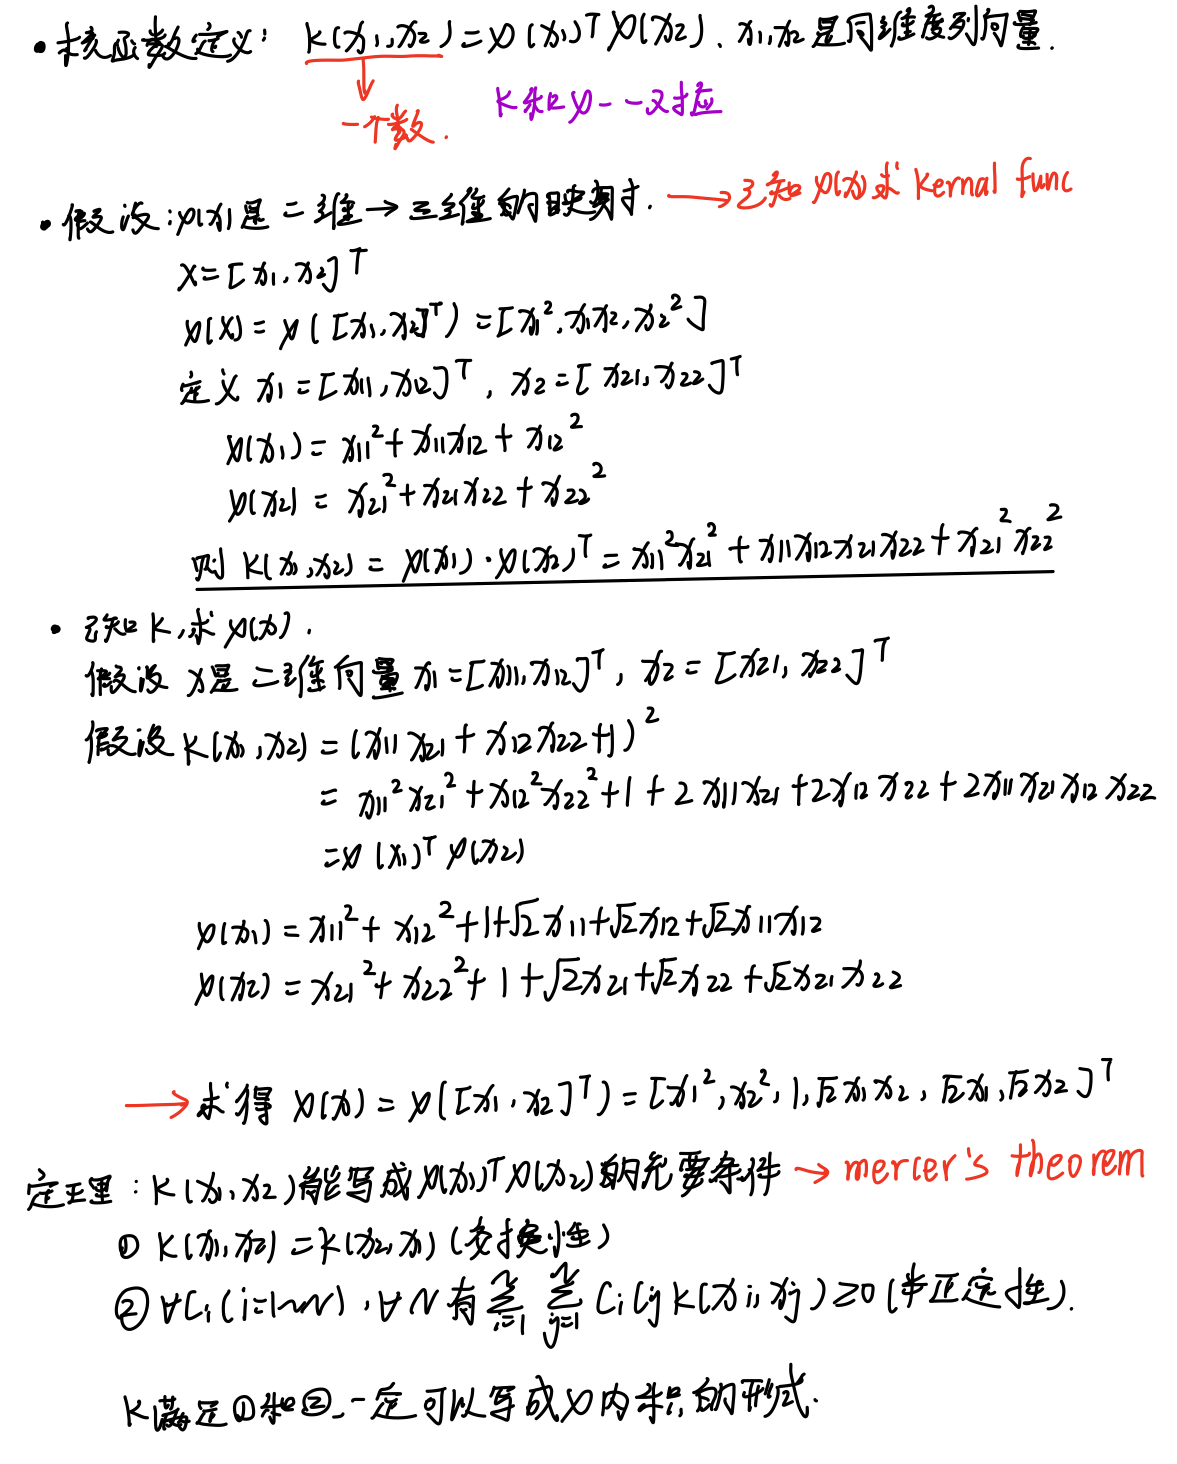 • 核函数定义: K(x₁,x₂)=φ(x₁)ᵀφ(x₂). x₁,x₂是同维度列向量.
一个数.
K和φ一一对应
• 假设:φ(x)是二维→三维的映射. → 已知φ(x)求 Kernal func
X=[x₁,x₂]ᵀ
φ(X)=φ([x₁,x₂]ᵀ)=[x₁²,x₁x₂,x₂²]
定义 x₁=[x₁₁,x₁₂]ᵀ, x₂=[x₂₁,x₂₂]ᵀ
φ(x₁)= x₁₁²+x₁₁x₁₂+x₁₂²
φ(x₂)= x₂₁²+x₂₁x₂₂+x₂₂²
则 K(x₁,x₂)=φ(x₁)·φ(x₂)ᵀ=x₁₁²x₂₁²+x₁₁x₁₂x₂₁x₂₂+x₂₁²x₂₂²
• 已知K,求φ(x).
假设 x是二维向量 x₁=[x₁₁,x₁₂]ᵀ, x₂=[x₂₁,x₂₂]ᵀ
假设K(x₁,x₂)=(x₁₁x₂₁+x₁₂x₂₂+1)²
= x₁₁²x₂₁²+x₁₂²x₂₂²+1+2x₁₁x₂₁+2x₁₂x₂₂+2x₁₁x₂₁x₁₂x₂₂
=φ(x₁)ᵀφ(x₂)
φ(x₁)=x₁₁²+x₁₂²+1+√2x₁₁+√2x₁₂+√2x₁₁x₁₂
φ(x₂)=x₂₁²+x₂₂²+1+√2x₂₁+√2x₂₂+√2x₂₁x₂₂
→ 求得 φ(x)=φ([x₁,x₂]ᵀ)=[x₁²,x₂²,1,√2x₁x₂,√2x₁,√2x₂]ᵀ
定理:K(x₁,x₂)能写成φ(x₁)ᵀφ(x₂)的充要条件 → mercer's theorem
① K(x₁,x₂)=K(x₂,x₁)(交换性)
② ∀Cᵢ(i=1~N),∀N 有 ∑ᵢ₌₁ᴺ ∑ⱼ₌₁ᴺ CᵢCⱼK(xᵢ,xⱼ)≥0(半正定性).
K满足①和②,一定可以写成φ内积的形式.